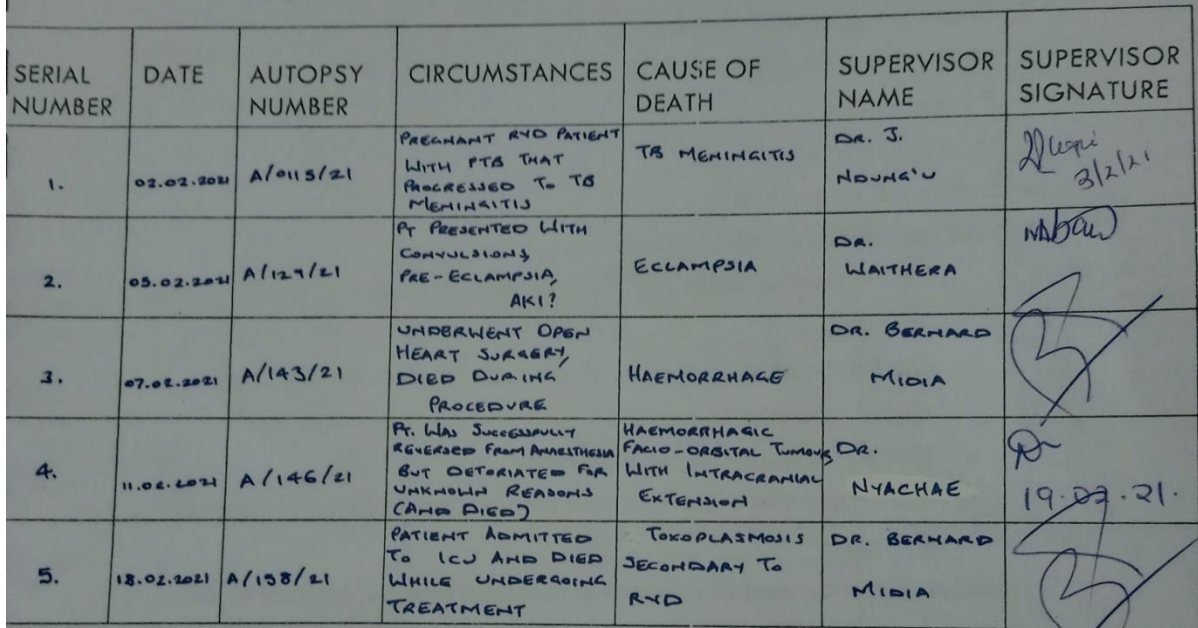 SERIAL NUMBER
DATE
AUTOPSY NUMBER
CIRCUMSTANCES
CAUSE OF DEATH
SUPERVISOR NAME
SUPERVISOR SIGNATURE
1.
02.02.2021
A/0115/21
PREGNANT RVD PATIENT
WITH PTB THAT
PROGRESSED TO TB
MENINGITIS
TB MENINGITIS
DR. J.
NDUNG'U
3/2/21
2.
05.02.2021
A/129/21
PT PRESENTED WITH
CONVULSIONS,
PRE-ECLAMPSIA,
AKI?
ECLAMPSIA
DR.
WAITHERA
3.
07.02.2021
A/143/21
UNDERWENT OPEN
HEART SURGERY,
DIED DURING
PROCEDURE
HAEMORRHAGE
DR. BERNARD
MIDIA
4.
11.02.2021
A/146/21
PT. WAS SUCCESSFULLY
REVERSED FROM ANAESTHESIA
BUT DETORIATED FOR
UNKNOWN REASONS
(AND DIED)
HAEMORRHAGIC
FACIO-ORBITAL TUMOUR
WITH INTRACRANIAL
EXTENSION
DR.
NYACHAE
19.02.21.
5.
18.02.2021
A/158/21
PATIENT ADMITTED
TO ICU AND DIED
WHILE UNDERGOING
TREATMENT
TOXOPLASMOSIS
SECONDARY TO
RVD
DR. BERNARD
MIDIA